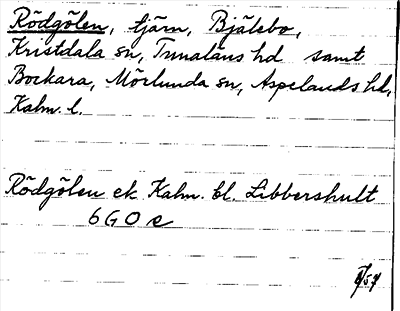 Rödgölen, tjärn, Bjälebo,
Kristdala sn, Tunaläns hd samt
Bockara, Mörlunda sn, Aspelands hd,
Kalm. l.
Rödgölen ek Kalm. bl. Libbershult
6 G O e